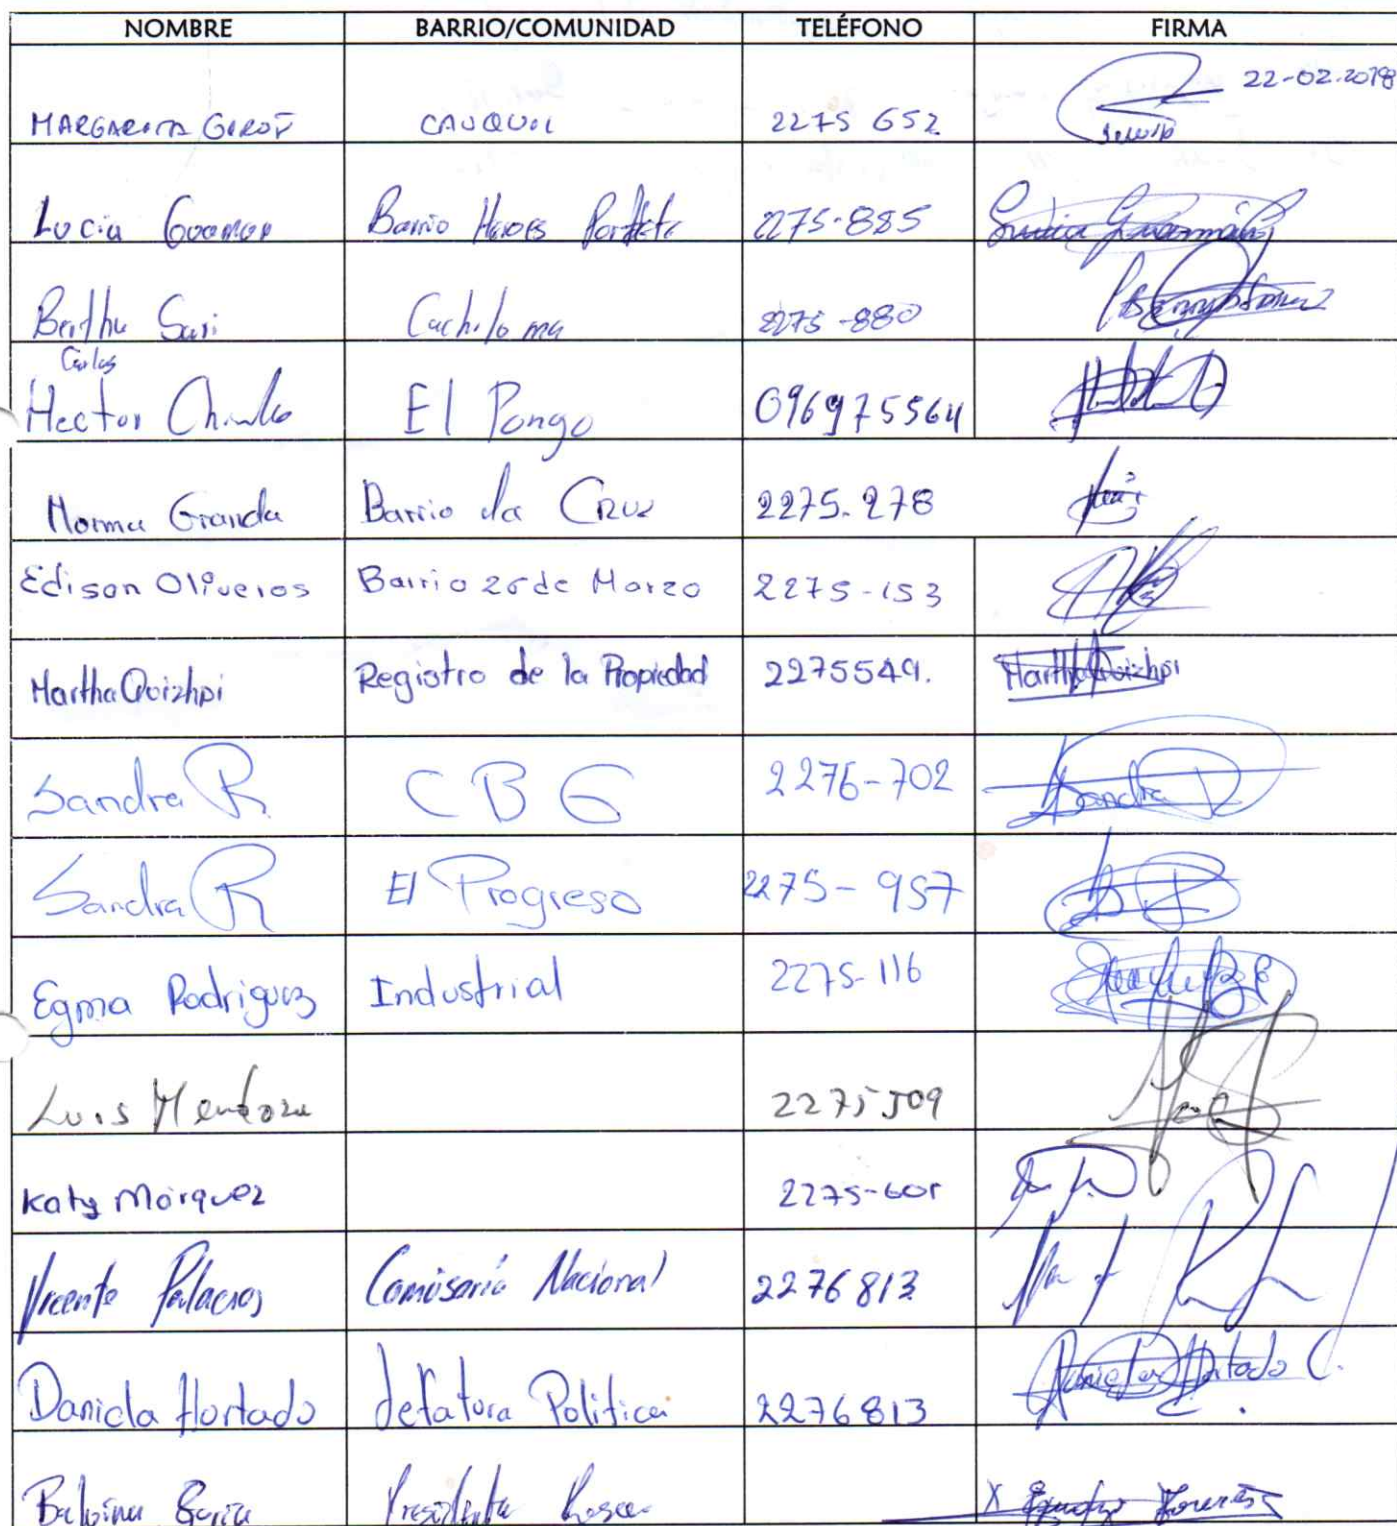 NOMBRE BARRIO/COMUNIDAD TELÉFONO FIRMA
22-02-2018
MARGARITA CAUQUIL 2275 652
Lucia Barrio Heroes 2275-885
Bertha Sari Cachiloma 2275-880
Carlos
Hector El Pongo 096975564
Norma Granda Barrio La Cruz 2275-278
Edison Oliveros Barrio 26 de Marzo 2275-153
Martha Quizhpi Registro de la Propiedad 2275549. Martha Quizhpi
Sandra R. C B G 2276-702 Sandra R
Sandra R El Progreso 2275-957
Egma Rodriguez Industrial 2275-116
Luis Mendoza 2275509
Katy Márquez 2275-601
Vicente Palacios Comisaria Nacional 2276813
Daniela Hurtado Jefatura Politica 2276813 Daniela Hurtado C.
Balvina Presidenta X